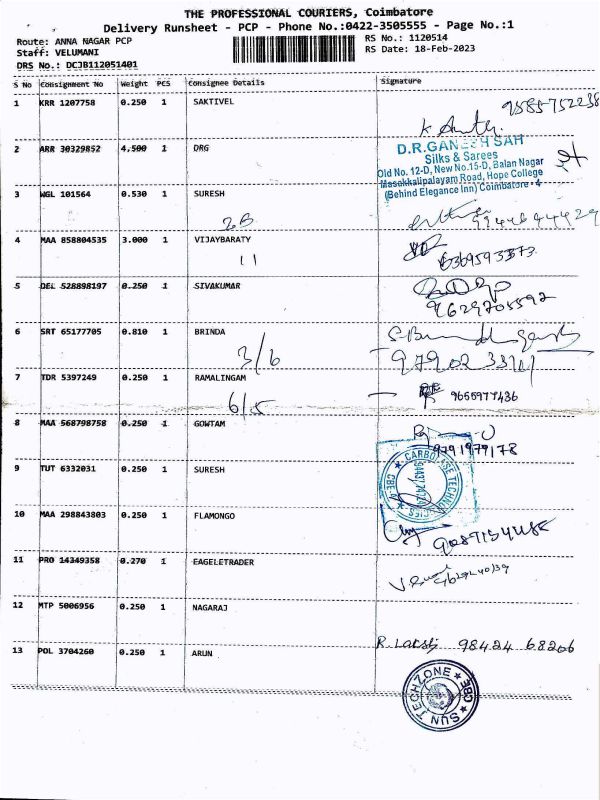 THE PROFESSIONAL COURIERS, Coimbatore
Delivery Runsheet - PCP - Phone No.:0422-3505555 - Page No.:1
Route: ANNA NAGAR PCP
RS No.: 1120514
Staff: VELUMANI
RS Date: 18-Feb-2023
DRS No.: DCJB112051401
S No Consignment No Weight PCS Consignee Details Signature
1 KRR 1207758 0.250 1 SAKTIVEL
9585752238
2 ARR 30329852 4,500 1 DRG
D.R.GANESH SAH
Silks & Sarees
Old No. 12-D, New No.15-D, Balan Nagar
Masakkalipalayam Road, Hope College
(Behind Elegance Inn) Coimbatore - 4
3 WGL 101564 0.530 1 SURESH
2B 9944644429
4 MAA 858804535 3.000 1 VIJAYBARATY
11 6369593573
5 DEL 528898197 0.250 1 SIVAKUMAR
9629705592
6 SRT 65177705 0.810 1 BRINDA
3/6
7 TDR 5397249 0.250 1 RAMALINGAM
6/5 9655977436
8 MAA 568798758 0.250 1 GOWTAM
9791979178
9 TUT 6332031 0.250 1 SURESH
10 MAA 298843803 0.250 1 FLAMONGO
11 PRO 14349358 0.270 1 EAGELETRADER
12 MTP 5006956 0.250 1 NAGARAJ
13 POL 3704260 0.250 1 ARUN
98424 68206
SUN TECHZONE CBE